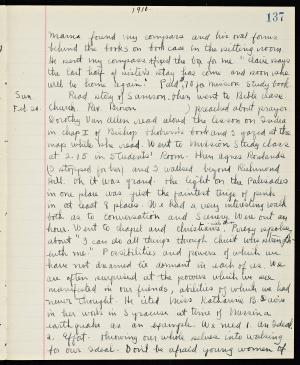 1910.
137
Mama found my compass and his oval forms
behind the books on bookcase in the sitting room.
He sent my compass & fixed the top for me. " Clare says
the last half of sister's stay has come and soon she
will be home again." Paid .10 for mission study book
Sun. Read story of Samson, then went to Bible class.
Feb 20. Church. Rev. preached about prayer.
Dorothy Van Allen read along the lesson on India
in chap I of Bishop book and I gazed at the
map while she read. Went to Mission Study class
at 2.15 in Students' Room. Then Agnes
(I stopped for her) and I walked beyond Richmond
Hill. Oh it was grand. The light on the Palisades
in one place was just the faintest tinge of pink
in at least 8 places. We had a very interesting walk
both as to conversation and scenery. Were out an
hour. Went to chapel and christians.
about "I can do all things through Christ who strength-
eth me." Possibilities and powers of which we
have not dreamed lie dormant in each of us. We
are often surprised at the powers which we see
manifested in our friends, abilities of which we had
never thought. He cited Miss Katharine Davis
in her work in Syracuse at time of Messina
earthquake as an example. We need 1. an Ideal
2. Effort. Throwing our whole selves into working
for our Ideal. Don't be afraid young women of